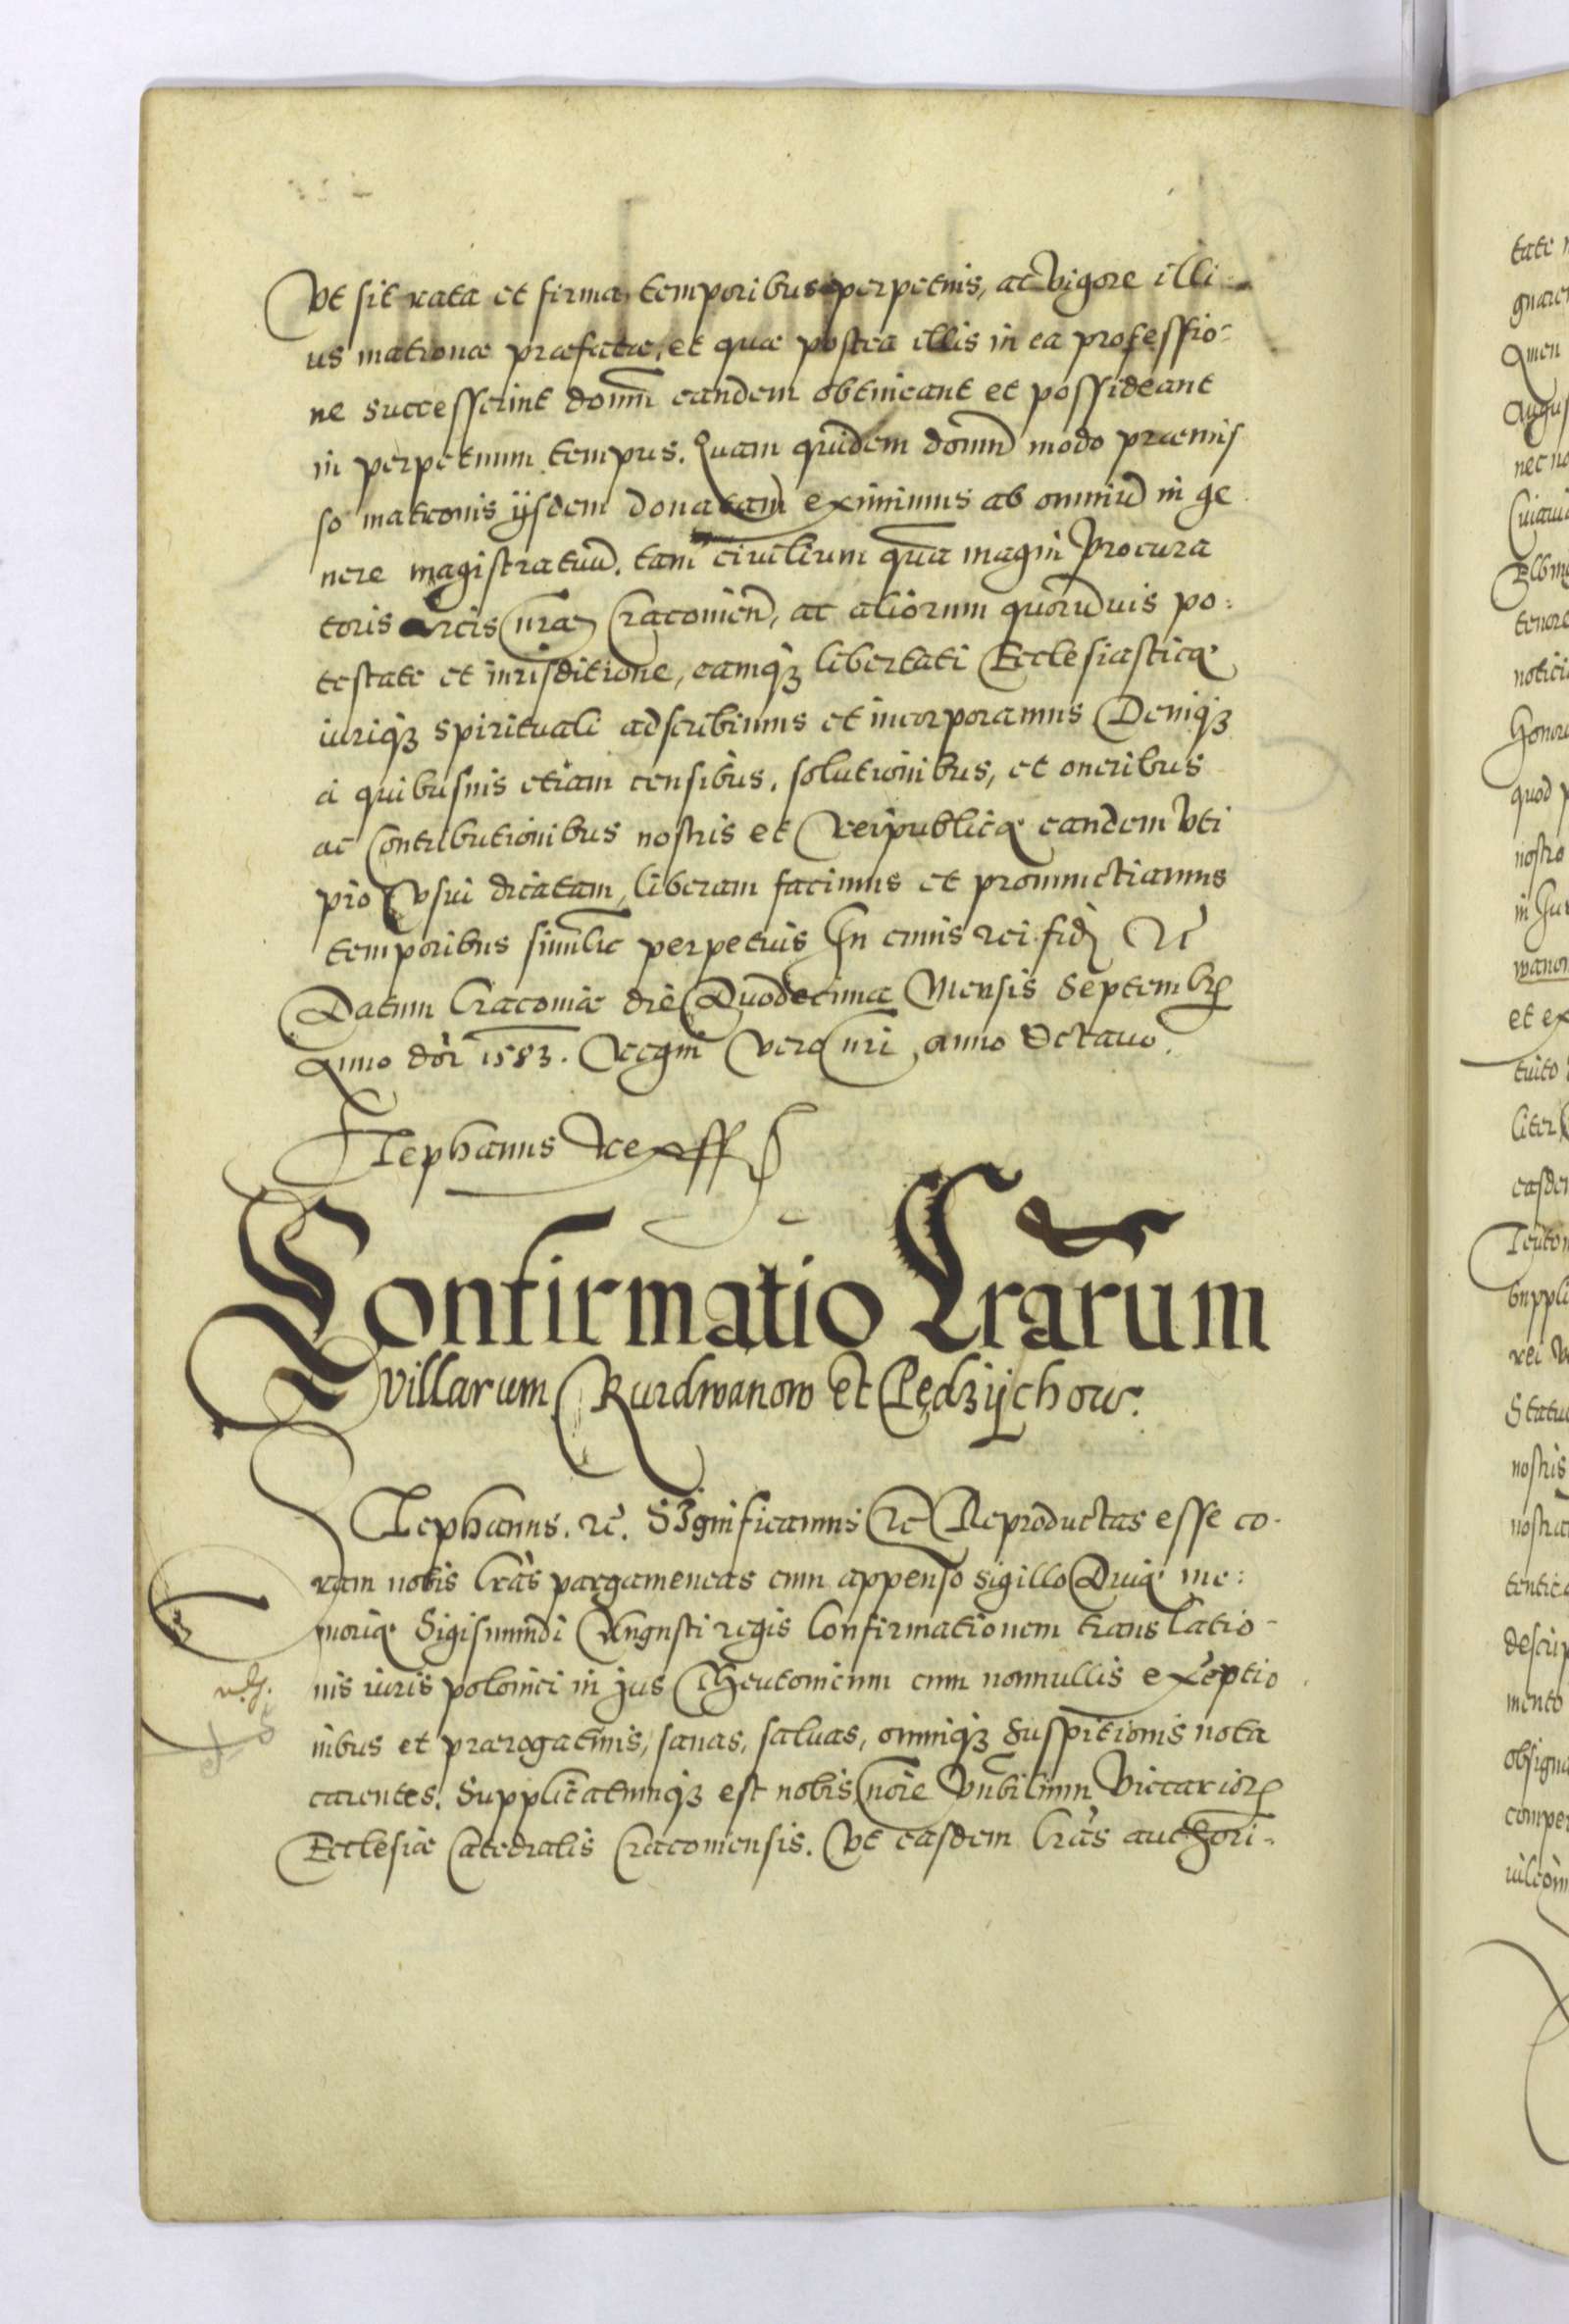 Vt sit rata et firma temporibus perpetuis, ac vigore illi-
us matronæ præfatæ, et quæ postea illis in ea professio-
ne successerint domū eandem obtineant et possideant
in perpetuum tempus. Quam quidem domū modo præmis
so matronis ijsdem donatam eximimus ab omniū in ge
nere magistratuū, tam ciuilium quā magni Procura
toris arcis nrae Cracouien, ac aliorum quorūuis po:
testate et iurisditione, eamq3 libertati Ecclesiasticæ
iuriq3 spirituali adscribimus et incorporamus Deniq3
a quibusuis etiam censibus, solutionibus, et oneribus
ac Contributionibus nostris et Reipublicæ eandem vti
pio vsui dicatam, liberam facimus et pronunctiamus
temporibus similit perpetuis In cuius rei fid. rc
Datum Cracouiæ die Duodecima Mensis Septembr
Anno dni 1583. Regni vero nri anno Octauo.
Stephanus Rex ss
Confirmatio Lrarum
villarum Kurdwanow et Pędzijchow.
Stephanus. rc. Significamus rc Reproductas esse co-
ram nobis Lras pargameneas cum appenso sigillo Diuæ me:
moriæ Sigismundi Augusti regis Confirmationem translatio-
nis iuris polonici in jus Theutonicum cum nonnullis exceptio
nibus et prærogatiuis, sanas, saluas, omniq3 suspitionis nota
carentes. Supplicatumq3 est nobis, noie Vnbilium Viccarior
Ecclesiæ Catedralis Cracouiensis. Vt easdem Lras authori-
tate
Augus
nec no
tenore
quod
nostro
et ex
tuito
liter
rei
Statu
nostris
nostra
mento
obsigna